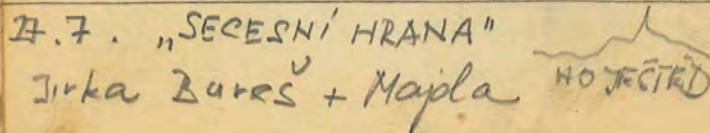 27.7. „SECESNÍ HRANA"
Jirka Bureš + Majda
HO JEŠTĚD